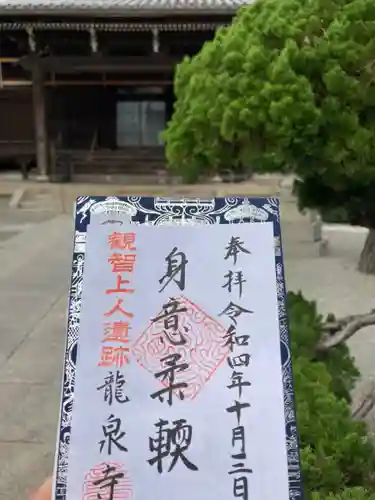 奉拝 令和四年十月二日
身意柔軟
観智上人遺跡
龍泉寺